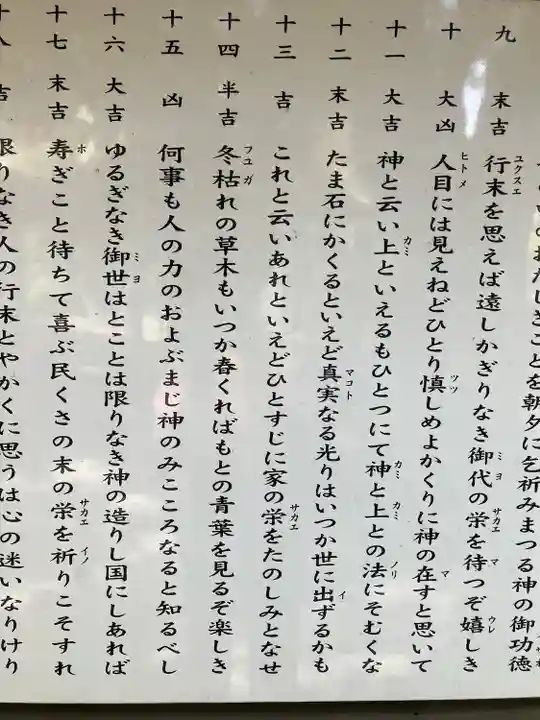 のおたしきことを朝夕に乞祈みまつる神の御功徳
九 末吉 行末を思えば遠しかぎりなき御代の栄を待つぞ嬉しき
十 大凶 人目には見えねどひとり慎しめよかくりに神の在すと思いて
十一 大吉 神と云い上といえるもひとつにて神と上との法にそむくな
十二 末吉 たま石にかくるといえど真実なる光りはいつか世に出ずるかも
十三 吉 これと云いあれといえどひとすじに家の栄をたのしみとなせ
十四 半吉 冬枯れの草木もいつか春くればもとの青葉を見るぞ楽しき
十五 凶 何事も人の力のおよぶまじ神のみこころなると知るべし
十六 大吉 ゆるぎなき御世はとことは限りなき神の造りし国にしあれば
十七 末吉 寿ぎこと待ちて喜ぶ民くさの末の栄を祈りこそすれ
十八 吉 限りなき人の行末とやかくに思うは心の迷いなりけり